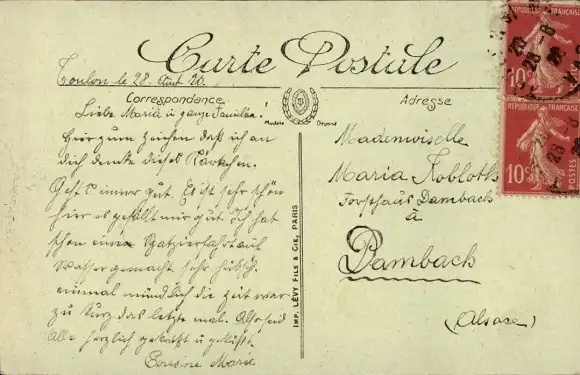 Carte Postale
Toulon le 28. Aout 20.
Correspondance
Adresse
Liebe Maria u ganze Familie!
Hier zum zeichen daß ich an
dich denke dieses Kärtchen.
Geht immer gut. Es ist sehr schön
hier es gefällt mir gut. Ich hat
schon eine Spatzierfahrt auf
Wasser gemacht sehr hübsch.
einmal mündlich die Zeit war
zu kurz das letzte mal. Also seid
Alle herzlich gegrüßt u geküßt.
Cousine Marie
Modèle Déposé
IMP. LÉVY FILS & CIE, PARIS
Mademoiselle
Maria Kobloth
Forsthaus Dambach
à
Dambach
(Alsace)
RÉPUBLIQUE FRANÇAISE
10c
POSTES
10c
POSTES